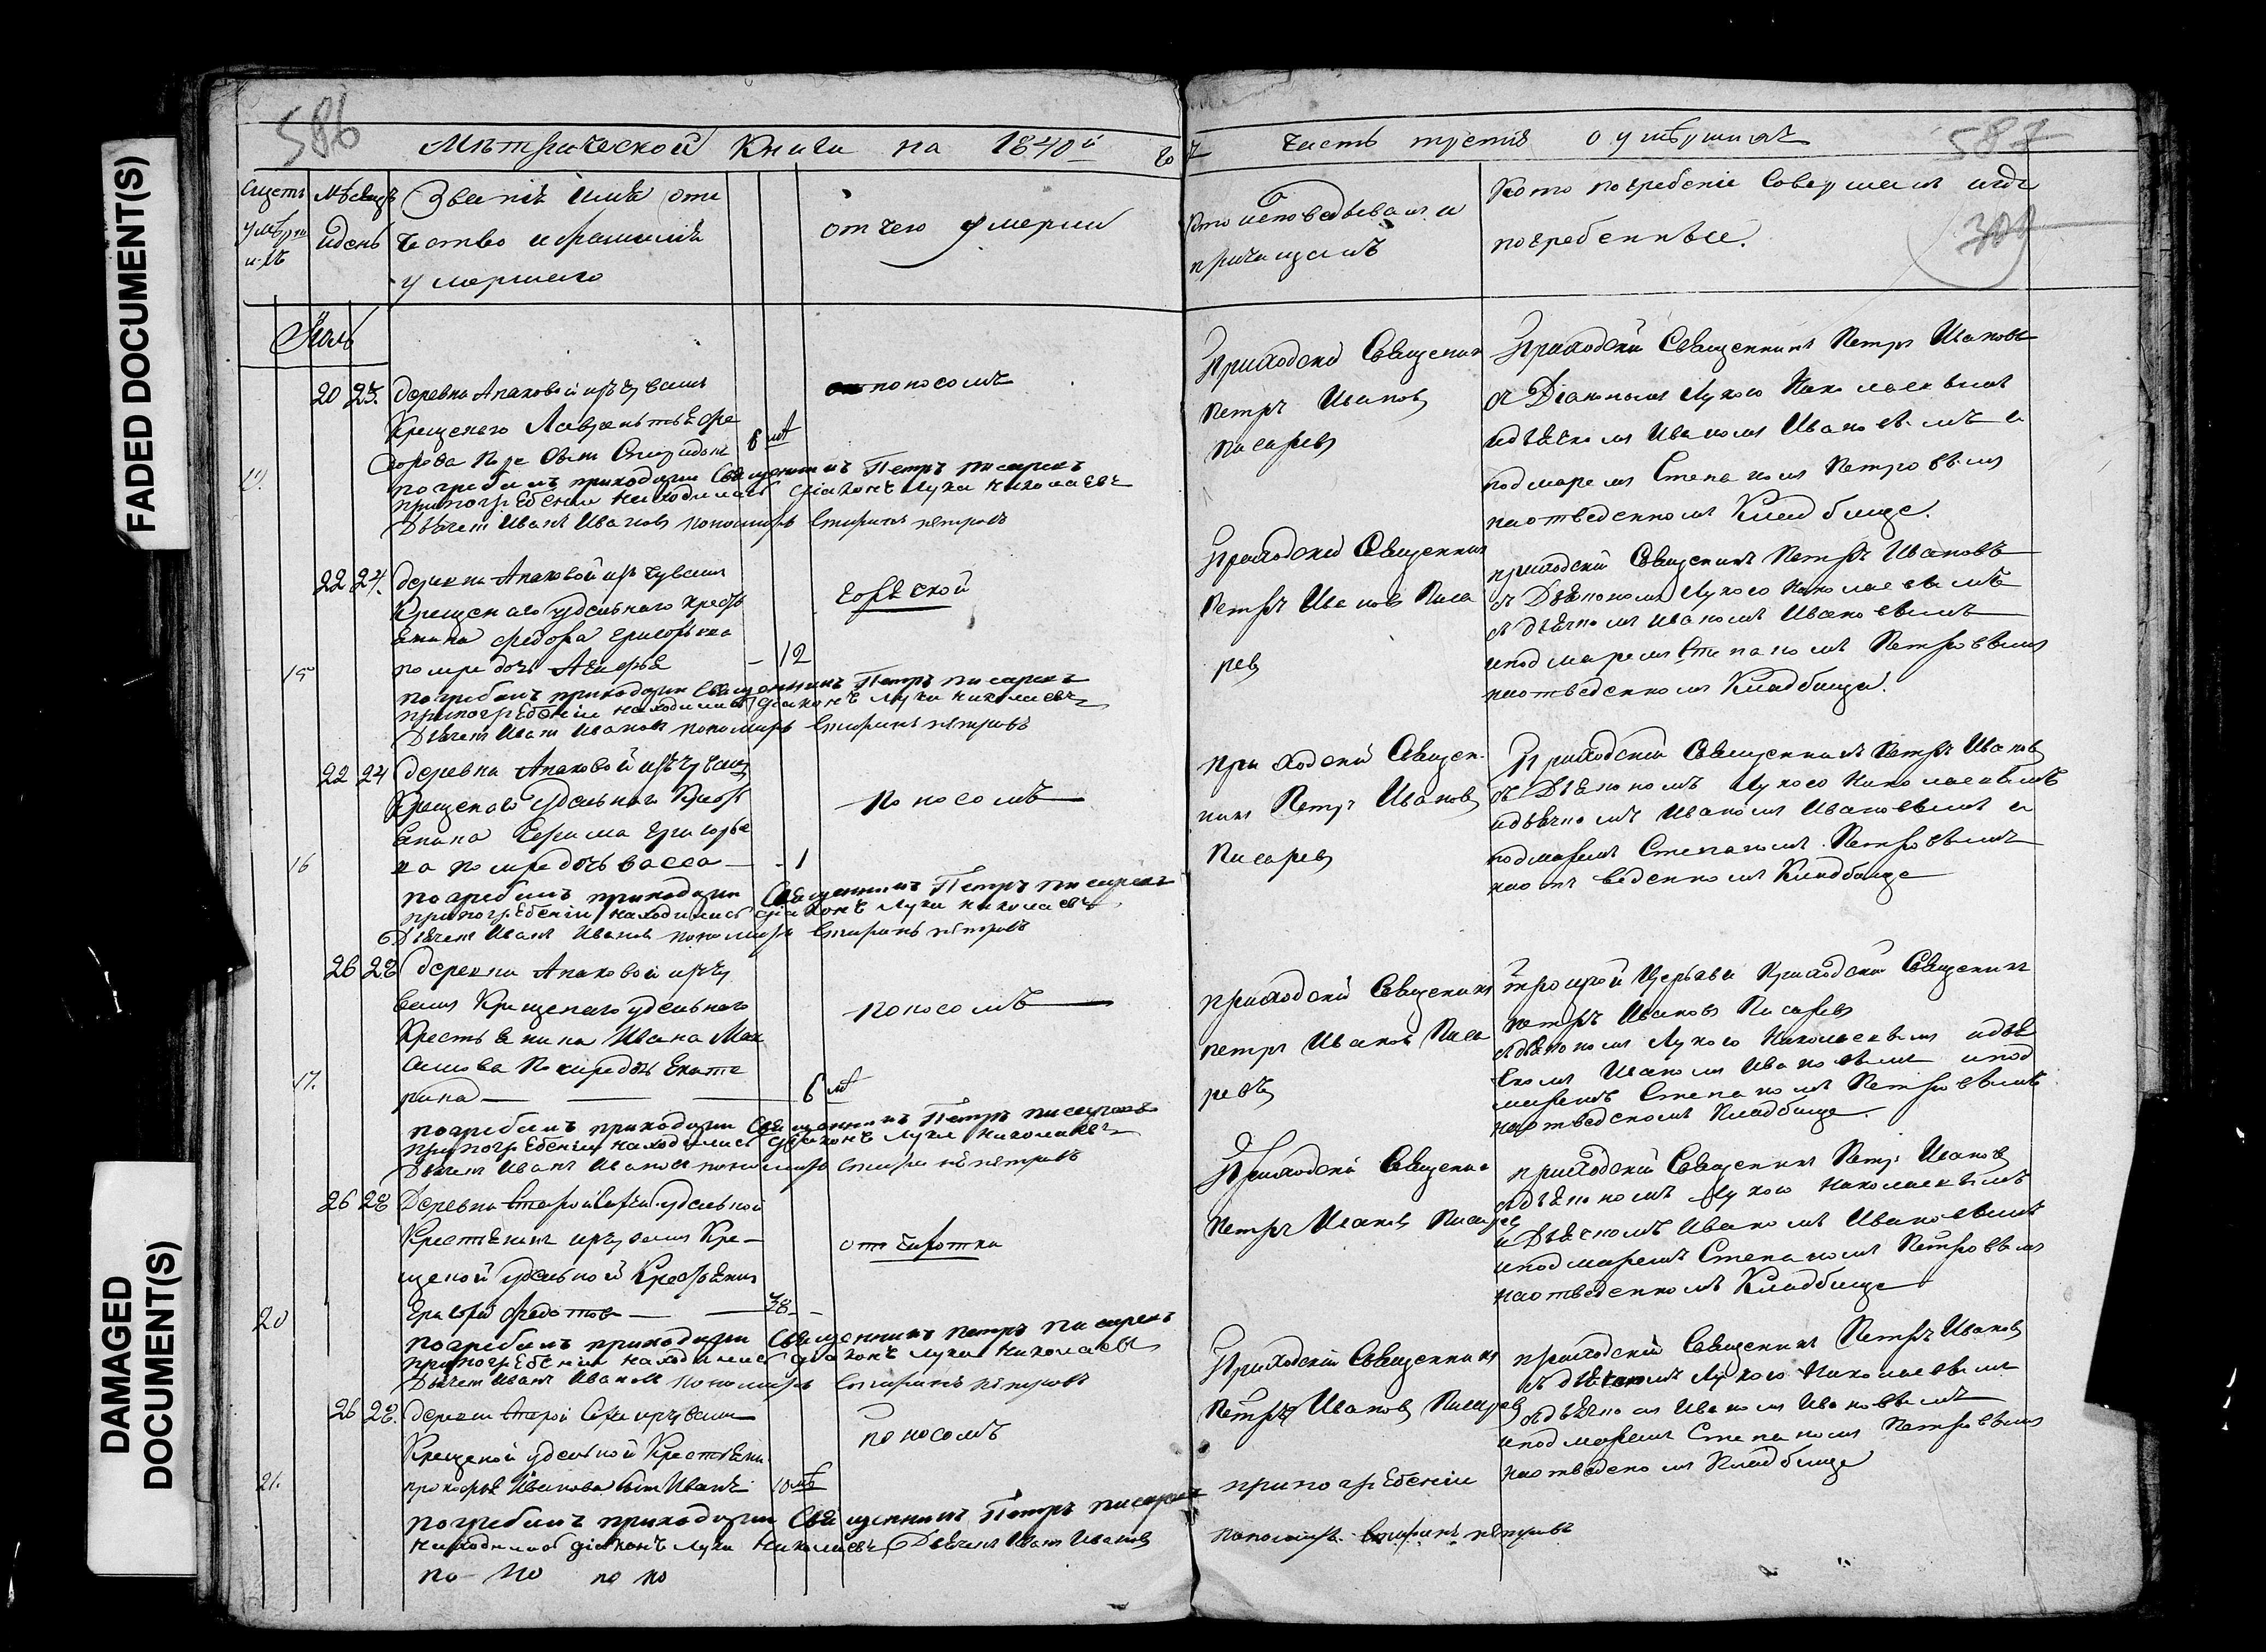 FADED DOCUMENT(S)
DAMAGED
DOCUMENT(S)
586
Метрической Книги на 1840й го
Счетъ умерши-хъ
Мѣсяцъ и день
Званiе имя оте
чество и фамилiя
умершаго
отчего умерли
Iюль
20 23. деревни Апаковой изъ чуваш
Крещенаго Лаврентья Фе
дорова
6 лѣт
поносомъ
погребалъ приходзки Священникъ Петръ писаревъ
при погрѣбенiи находились дiаконъ Лука Николаевъ
Дьячек Иванъ Иванов пономарь Стифанъ петровъ
22 24. деревни Апаковой изъ чуваш
Крещенаго удельнаго кресть
янина Федора Григорьева
помре дочь
15
12
горячкой
погребалъ приходзки Священникъ Петръ писаревъ
при погрѣбенiи находились дiаконъ Лука Николаевъ
Дьячек Иван Иванов пономарь Стифанъ петровъ
22 24 деревни Апаковой изъ чуваш
Крещенаго удельнаго Кресть
янина Герасима Григорье
ва помре дочь васса
16
1
поносомъ
погребалъ приходзки Священникъ Петръ писаревъ
при погрѣбенiи находились дiаконъ Лука Николаевъ
Дьячек Иванъ Иванов пономарь Стифанъ петровъ
26 28 деревни Апаковой изъ чу
ваш Крещенаго удельнаго
Крестьянина Ивана Мак
симова Помре дочь Екате
рина
17.
6 лѣт
поносомъ
погребалъ приходзки Священникъ Петръ писаревъ
при погрѣбенiи находились дiаконъ Лука Николаевъ
Дьячек Иванъ Иванов пономарь Стифанъ петровъ
26 28 Деревни Старой удельной
Крестьянинъ изъ чуваш Кре-
щеной удельной Крестьянин
Григорiй Федотов
20
38
от чахотки
погребалъ приходзки Священникъ Петръ писаревъ
при погрѣбенiи находились дiаконъ Лука Николаевъ
Дьячек Иванъ Иванов пономарь Стифанъ петровъ
26 28. деревни Старой изъ чуваш
Крещеной удельной Крестьяни
прокофья Иванова сын Иванъ
21.
10 лѣ
поносомъ
погребалъ приходзки Священникъ Петръ писаревъ
находились дiаконъ Лука Николаевъ Дьячек Иван Иванов
по по по по
часть третiя о умѣршихъ
587
Кто исповедывалъ и
причащалъ
Кто погребенiе Совершалъ и где
погребенные.
Приходскiй Священик
Петръ Иванов
Писаревъ
Приходскiй Священникъ Петръ Ивановъ
съ Дiакономъ Лукою Николаевымъ
и дьячкомъ Иваномъ Ивановымъ и
подмаремъ Степаномъ Петровымъ
на отведенномъ Кладбище.
Приходскiй Священник
Петръ Иванов Писа
ревъ
приходскiй Священикъ Петръ Ивановъ
съ Дьякономъ Лукою Николаевымъ
съ дьячкомъ Иваномъ Ивановымъ
и подмаремъ Степаномъ Петровымъ
на отведенномъ Кладбище.
При ходскiй Священ
никъ Петръ Иванов
Писаревъ
Приходскiй Священникъ Петръ Иванов
съ Дьякономъ Лукою Николаевымъ
и дьячкомъ Иваномъ Ивановымъ и
подмаремъ Степаномъ Петровымъ
на отъ веденномъ Кладбище
приходскiй Священикъ
петръ Иванов Писа
ревъ
троицкой Церкви приходскiй Священикъ
петръ Иванов Писаревъ
съ дьякономъ Лукою Николаевымъ и дья
скомъ Иваномъ Ивановымъ и под
маремъ Степаномъ Петровымъ
на отведеномъ Кладбище.
Приходскiй Священик
Петръ Иванов Писарев
приходскiй Священикъ Петръ Иванов
съ дьякономъ Лукою Николаевымъ
и Дьяскомъ Иваномъ Ивановымъ
и подмаремъ Степаномъ Петровымъ
на отведенномъ Кладбище
Приходскiй Священникъ
Петръ Иванов Писарев
приходскiй Священикъ Петръ Иванов
съ дьякономъ Лукою Николаевымъ
съ дьячкомъ Иваномъ Ивановымъ
и подмаремъ Степаномъ Петровымъ
на отведеномъ Кладбище
при погрѣбенiи
пономарь Стифанъ петровъ